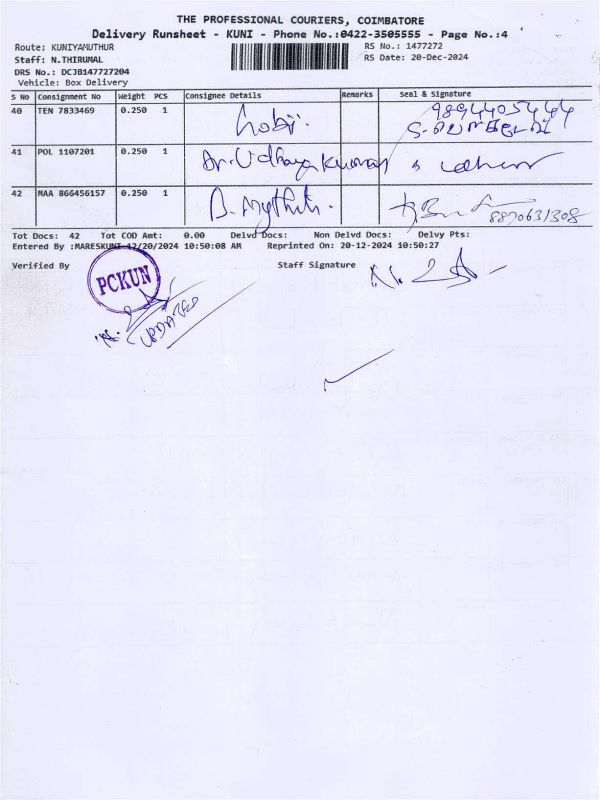 THE PROFESSIONAL COURIERS, COIMBATORE
Delivery Runsheet - KUNI - Phone No.:0422-3505555 - Page No.:4
Route: KUNIYAMUTHUR
RS No.: 1477272
Staff: N.THIRUMAL
RS Date: 20-Dec-2024
DRS No.: DCJB147727204
Vehicle: Box Delivery
S No Consignment No Weight PCS Consignee Details Remarks Seal & Signature
40 TEN 7833469 0.250 1
41 POL 1107201 0.250 1 Dr. Udhaya Kumar
42 MAA 866456157 0.250 1 8870631308
Tot Docs: 42 Tot COD Amt: 0.00 Delvd Docs: Non Delvd Docs: Delvy Pts:
Entered By :MARESKUNI 12/20/2024 10:50:08 AM Reprinted On: 20-12-2024 10:50:27
Verified By Staff Signature
PCKUN
UPDATED